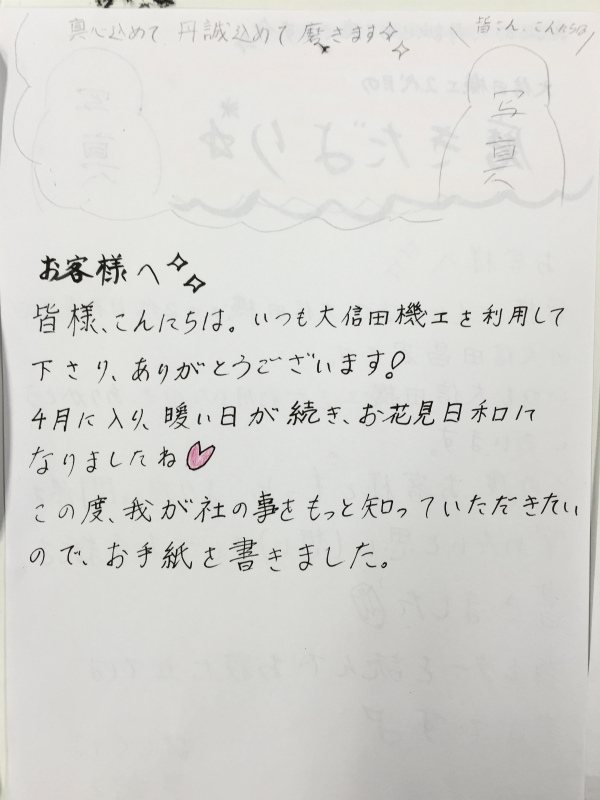 真心込めて 丹誠込めて 磨きます
皆さん、こんにちは
写真
お客様へ
皆様、こんにちは。いつも大信田機工を利用して
下さり、ありがとうございます!
4月に入り、暖い日が続き、お花見日和に
なりましたね
この度、我が社の事をもっと知っていただきたい
ので、お手紙を書きました。